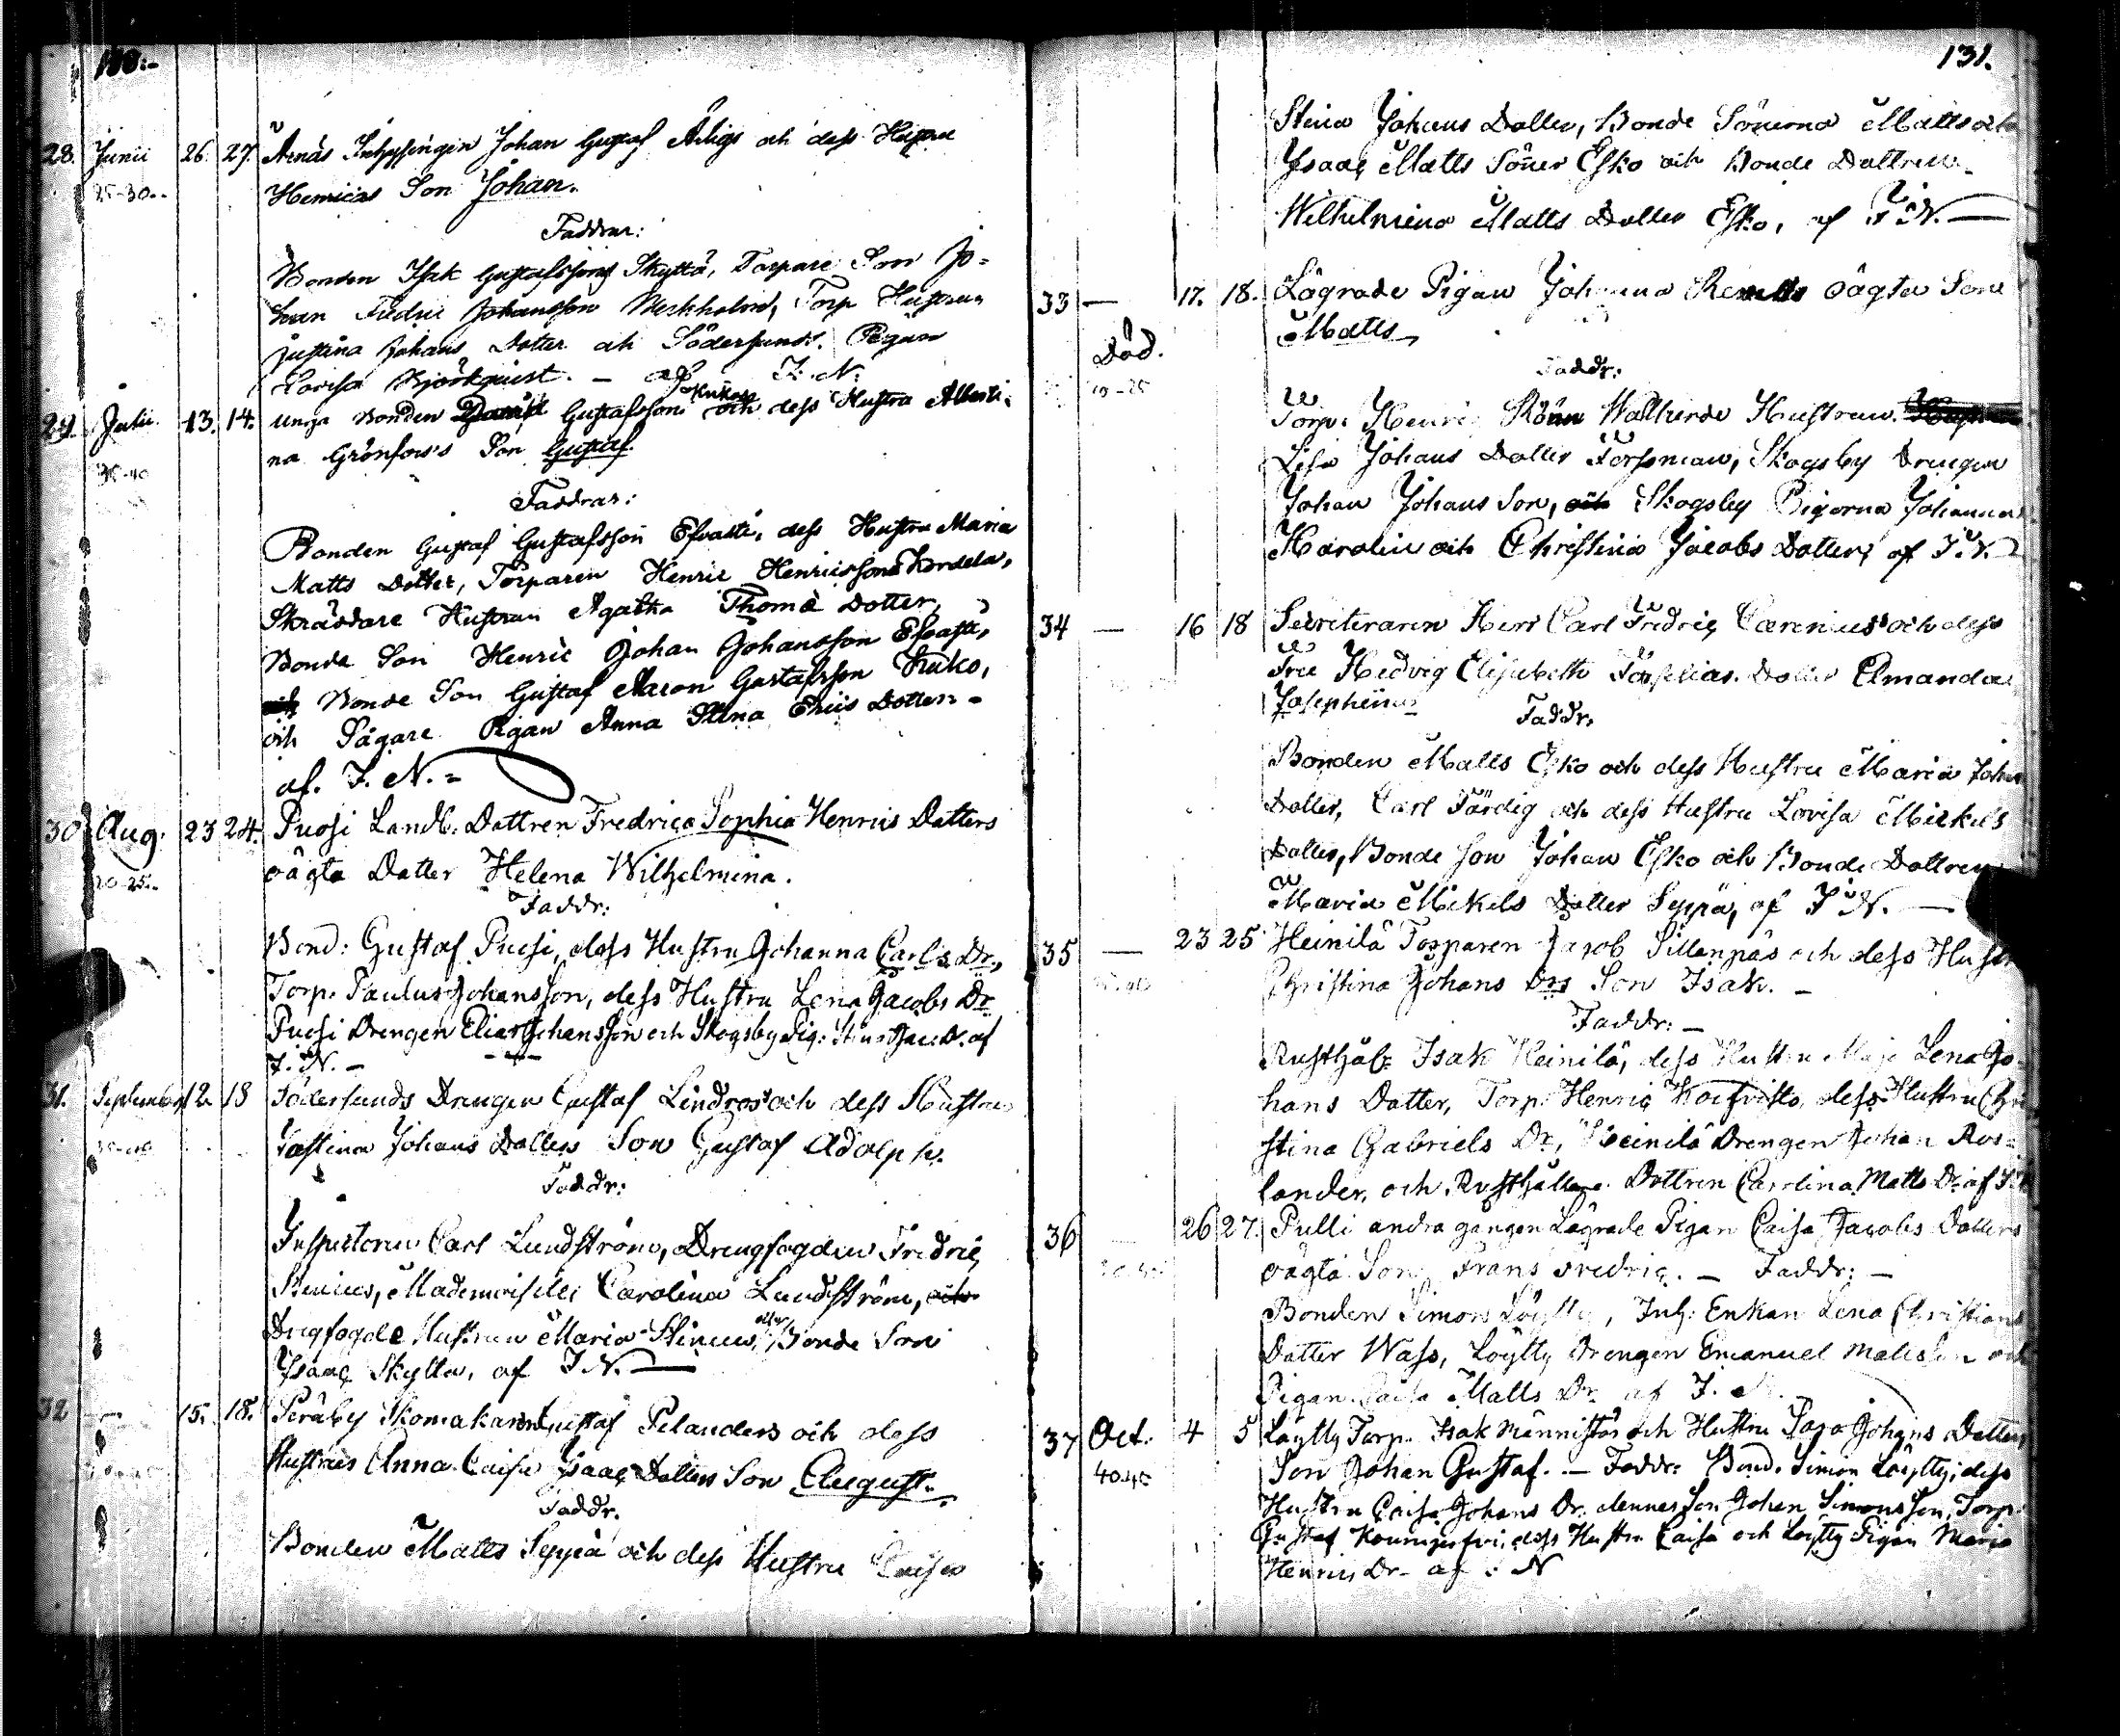 130.-
28. Junii 26. 27. Årnäs Johan Gustaf och dess Hustru
25-30. Henricas Son Johan.
Faddrar:
Bonden Isak Gustafsson Skyttä, Torpare Son Jo-
han Fredric Johansson Torp Hustrun
Justina Johans Dotter och Södersunds Pigan
Lovisa Björkqvist. – af I. N.
29. Julii 13. 14. unga Bonden Gustafssons och dess Hustru Alberti-
na Grönfors's Son Gustaf.
Faddrar:
Bonden Gustaf Gustafsson Esvasti, dess Hustru Maria
Matts Dotter, Torparen Henric Henricsson Kordela,
Skräddare Hustrun Agatha Thomæ Dotter,
Bonde Son Henric Johan Johansson Esvasti,
och Bonde Son Gustaf Aaron Gustafsson Kuko,
och Sågare Pigan Anna Stina Erics Dotter -
af. I. N. =
30 Aug. 23 24. Puosi Landb. Dottren Fredrica Sophia Henrics Dotters
20-25. oägta Dotter Helena Wilhelmina.
Faddr:
Bond: Gustaf Puosi, dess Hustru Johanna Carls Dr,
Torp. Paulus Johansson, dess Hustru Lena Jacobs Dr
Puosi Drengen Elias Johansson och Skogsby Pig: Stina Jac. D. af
I. N. –
31. September 12. 13 Södersunds Drengen Gustaf Lindros och dess Hustrus
Justina Johans Dotters Son Gustaf Adolph.
Faddr:
Inspectoren Carl Lundström, Drengfogden Fredric
Mademoiselle Carolina Lundström, och
Drngfogde Hustrun Maria Bonde Son
Isaac Skytta, af I N.
32 — 15. 18. Peräby Skomakaren Gustaf Pelanders och dess
Hustrus Anna Caisa Isaacs Dotters Son August.
Faddr.
Bonden Matts Seppä och dess Hustru Caisa
131.
Stina Johans Dotter, Bonde Sönerna Matts och
Isaac Matts Söner Esko och Bonde Dottren
Wilhelmina Matts Dotter Esko, af I. N.
33 — 17. 18. Lägrade Pigan Johanna oägta Son
Matts
Död.
Faddr:
Torp: Henric Rönn Hustrun
Lisa Johans Dotter Forsman, Skogsby Drengen
Johan Johans Son, och Skogsby Pigorna Johanna
Karolin och Christina Jacobs Dotter, af I. N.
34 — 16 18 Secreteraren Herr Carl Fredric Carenius och dess
Fru Hedvig Elisabeth Dotter Amanda
Josephina
Faddr.
Bonden Matts Esko och dess Hustru Maria Johans
Dotter, Carl Färdig och dess Hustru Lovisa Mickels
Dotter, Bonde Son Johan Esko och Bonde Dottren
Maria Mikels Dotter Seppä, af I. N.
35 — 23 25 Heinilä Torparen Jacob Sillanpäs och dess Hustru
Christina Johans Drs Son Isak. –
Faddr: –
Rusthål: Isak Heinilä, dess Hustru Maja Lena Jo-
hans Dotter, Torp: Henric Koivisto, dess Hustru Chri
stina Gabriels Dr, Heinilä Drengen Johan Ros-
lander, och Rusthållare Dottren Carolina Matts Dr af I. N
36 — 26 27. Pulli andra gången Lägrade Pigan Caisa Jacobs Dotters
oägta Son Frans Fredric. – Faddr: –
Bonden Simon Löytty, Inh: Enkan Lena Christians
Dotter Wass, Löytty Drengen Emanuel Matsson och
Pigan Caisa Matts Dr. af I. N.
37 Oct. 4 5 Löytty Torp. Isak Männistös och Hustru Johans Dotters
40-45 Son Johan Gustaf. – Faddr: Bond. Simon Löytty, dess
Hustru Caisa Johans Dr. dennes Son Johan Simonsson, Torp.
Gustaf dess Hustru Caisa och Löytty Pigan Maria
Henrics Dr. af I. N